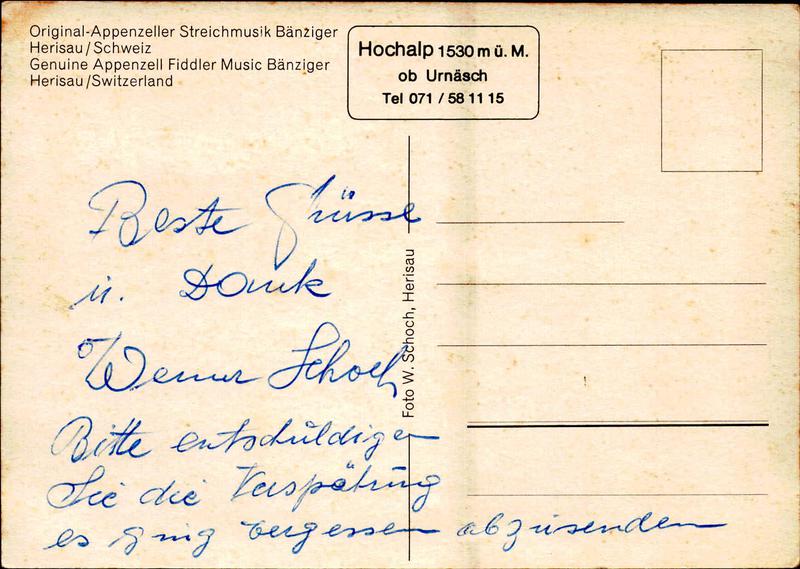 Original-Appenzeller Streichmusik Bänziger
Herisau/Schweiz
Genuine Appenzell Fiddler Music Bänziger
Herisau/Switzerland
Hochalp 1530 m ü. M.
ob Urnäsch
Tel 071 / 58 11 15
Foto W. Schoch, Herisau
Beste Grüsse
u. Dank
Werner Schoch
Bitte entschuldigen
Sie die Verspätung
es ging vergessen abzusenden